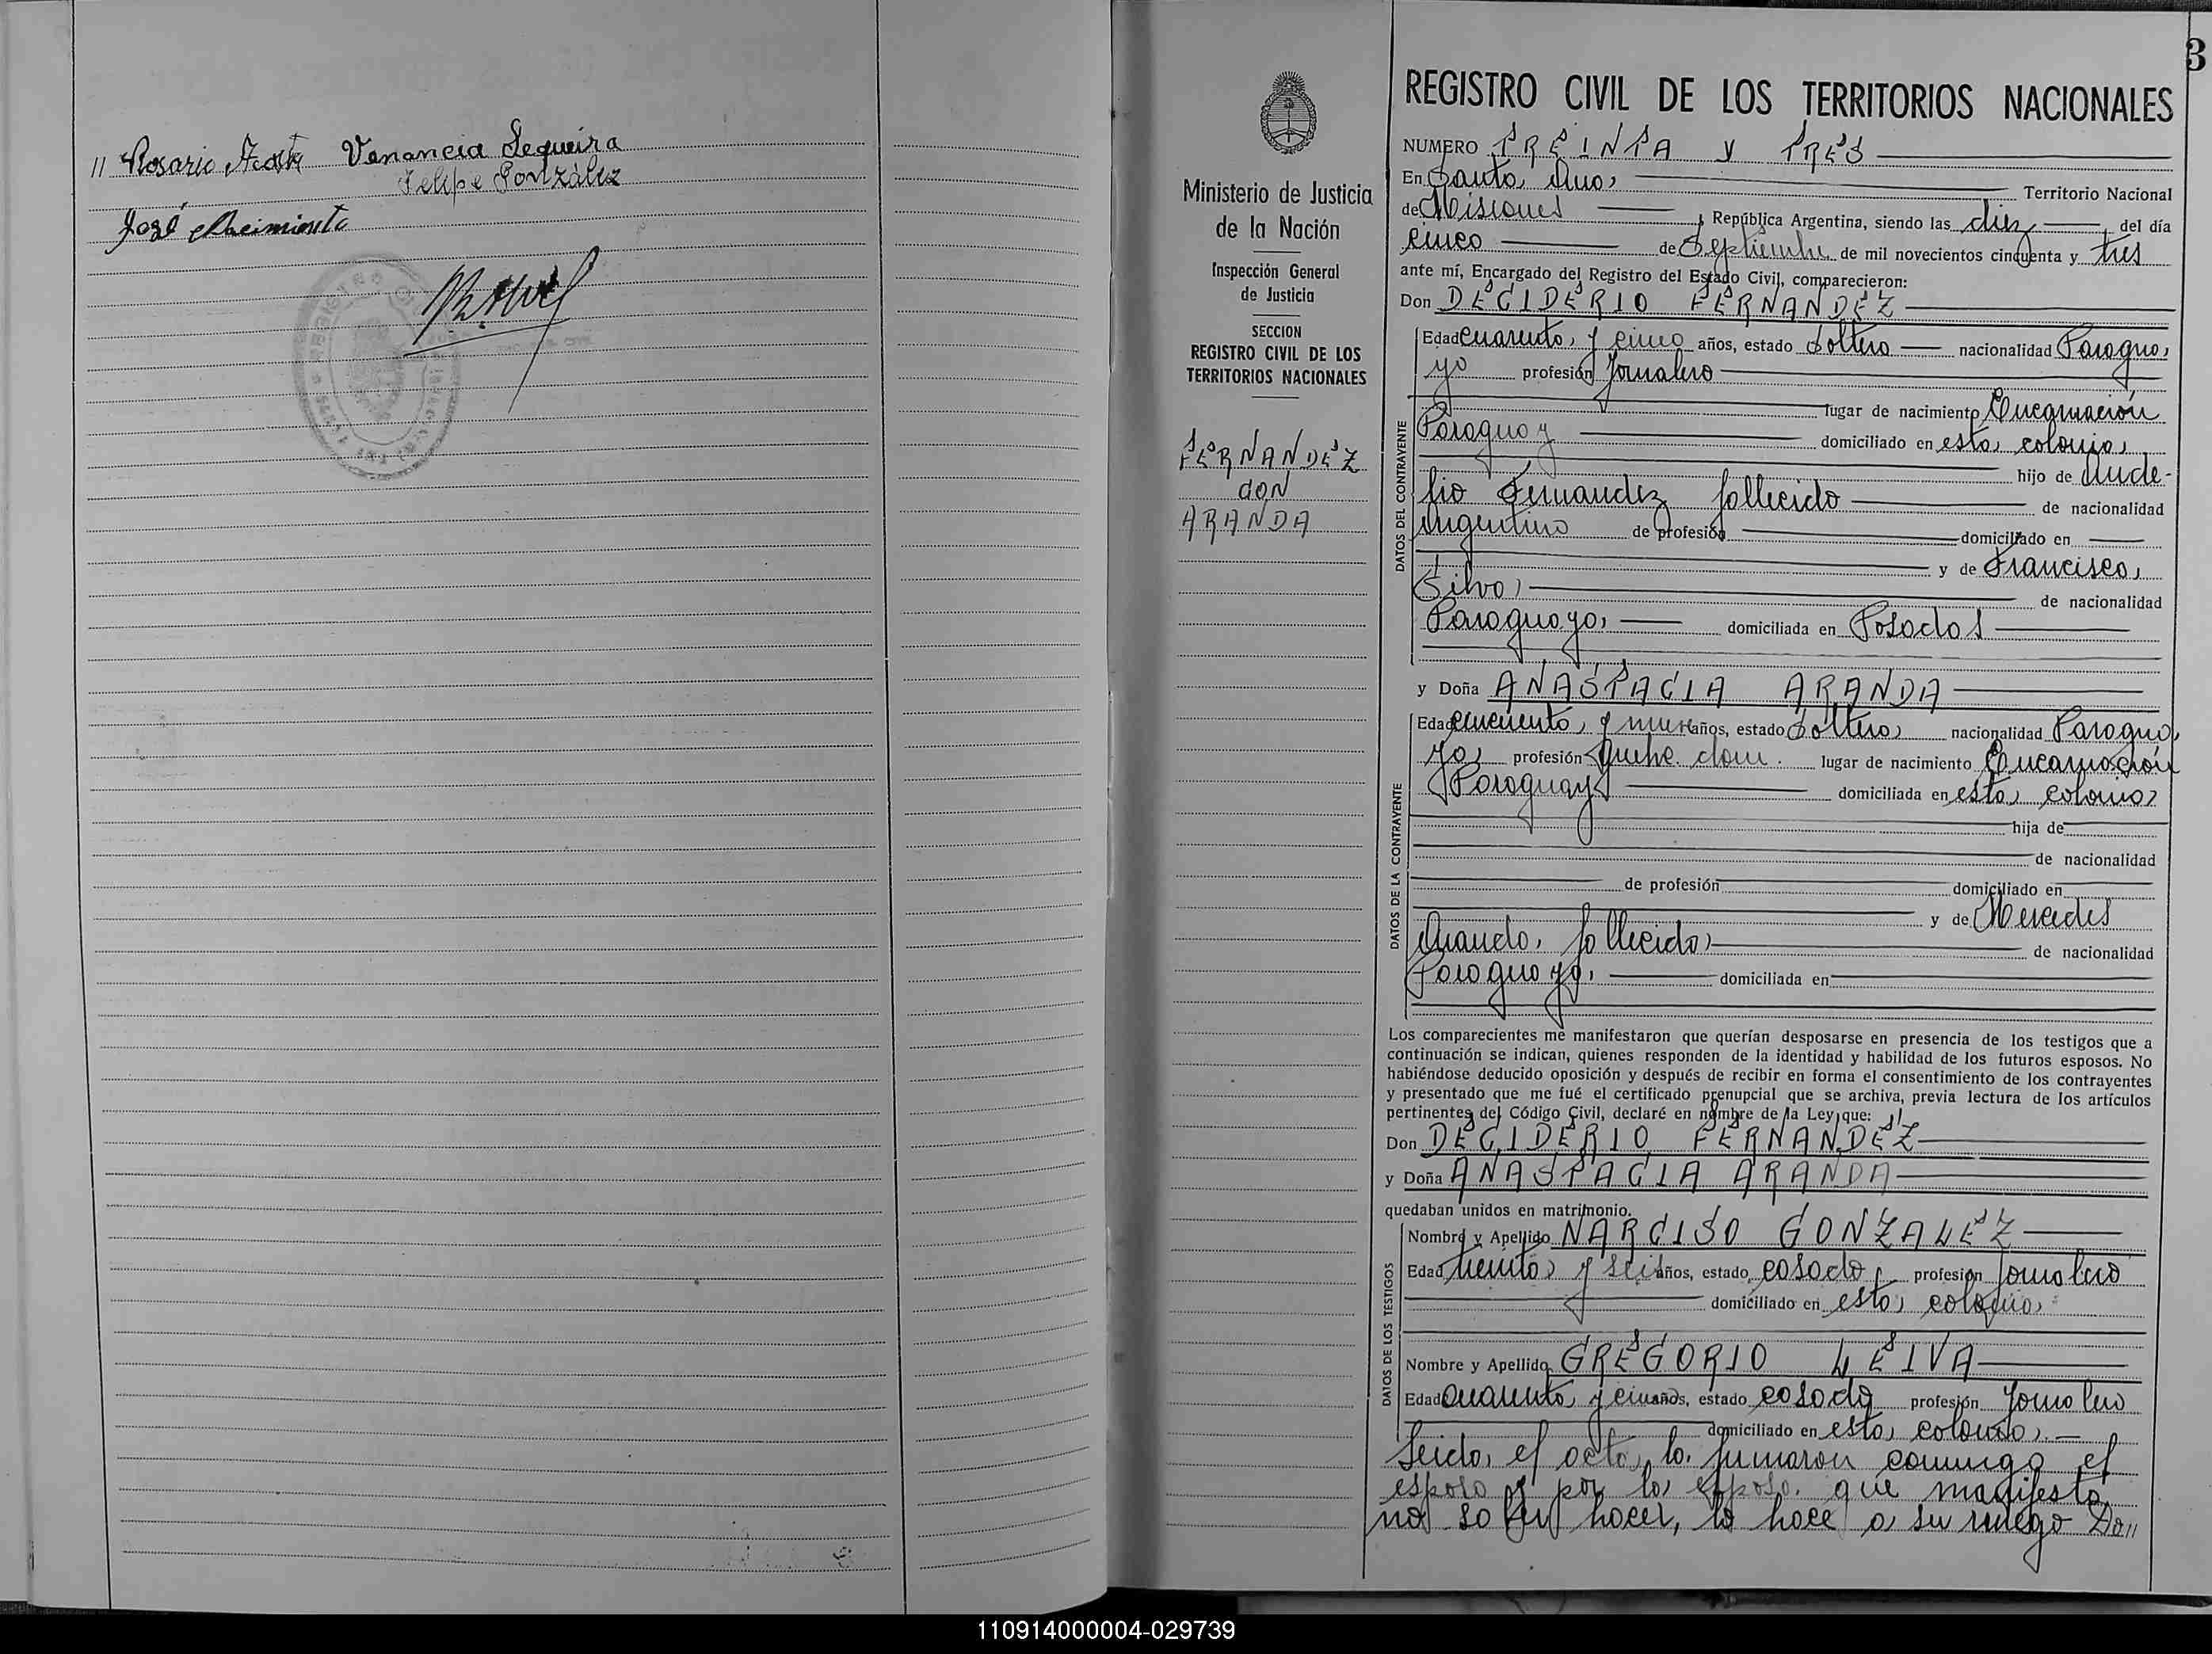 11 Rosario Acosta Venancia Sequeira
Felipe González
José Nacimiento
3
REGISTRO CIVIL DE LOS TERRITORIOS NACIONALES
Ministerio de Justicia
de la Nación
Inspección General
de Justicia
SECCION
REGISTRO CIVIL DE LOS
TERRITORIOS NACIONALES
FERNANDEZ
CON
ARANDA
NUMERO TREINTA Y TRES
En Santa Ana, Territorio Nacional
de Misiones, República Argentina, siendo las diez del día
cinco de Septiembre de mil novecientos cincuenta y tres
ante mí, Encargado del Registro del Estado Civil, comparecieron:
Don DECIDERIO FERNANDEZ
DATOS DEL CONTRAYENTE
Edad cuarenta y cinco años, estado soltero nacionalidad Paragua
yo profesión jornalero
lugar de nacimiento Encarnación
Paraguay domiciliado en esta colonia
hijo de
Fernandez fallecido de nacionalidad
Argentino de profesión domiciliado en
y de Francisca
Silva de nacionalidad
Paraguaya domiciliada en Posadas
y Doña ANASTACIA ARANDA
DATOS DE LA CONTRAYENTE
Edad cincuenta y nueve años, estado soltera nacionalidad Paragua
ya profesión quehe. dom. lugar de nacimiento Encarnación
Paraguay domiciliada en esta colonia
hija de
de nacionalidad
de profesión domiciliado en
y de Mercedes
Aranda, fallecida de nacionalidad
Paraguaya, domiciliada en
Los comparecientes me manifestaron que querían desposarse en presencia de los testigos que a
continuación se indican, quienes responden de la identidad y habilidad de los futuros esposos. No
habiéndose deducido oposición y después de recibir en forma el consentimiento de los contrayentes
y presentado que me fué el certificado prenupcial que se archiva, previa lectura de los artículos
pertinentes del Código Civil, declaré en nombre de la Ley que:
Don DECIDERIO FERNANDEZ
y Doña ANASTACIA ARANDA
quedaban unidos en matrimonio.
DATOS DE LOS TESTIGOS
Nombre y Apellido NARCISO GONZALEZ
Edad treinta y seis años, estado casado profesión jornalero
domiciliado en esta colonia
Nombre y Apellido GREGORIO LEIVA
Edad cuarenta y cin años, estado casado profesión jornalero
domiciliado en esta colonia.
Leida el acta, la firmaron conmigo el
esposo y por la esposa que manifesta
no saber hacer, lo hace a su ruego Don
110914000004-029739